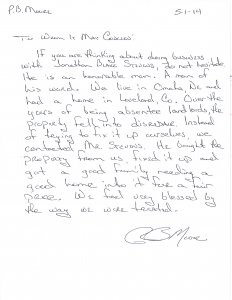 P.B. Moore 5-1-14
To Whom It May Concern:
If you are thinking about doing business
with Jonathan Blake Stevens, do not hesitate.
He is an honorable man. A man of
his word. We live in Omaha, Ne and
had a home in Loveland, Co. Over the
years of being absentee landlords, the
property fell into disrepair. Instead
of trying to fix it up ourselves, we
contacted Mr. Stevens. He bought the
property from us, fixed it up and
got a good family needing a
good home into it for a fair
price. We feel very blessed by
the way we were treated.
P B Moore